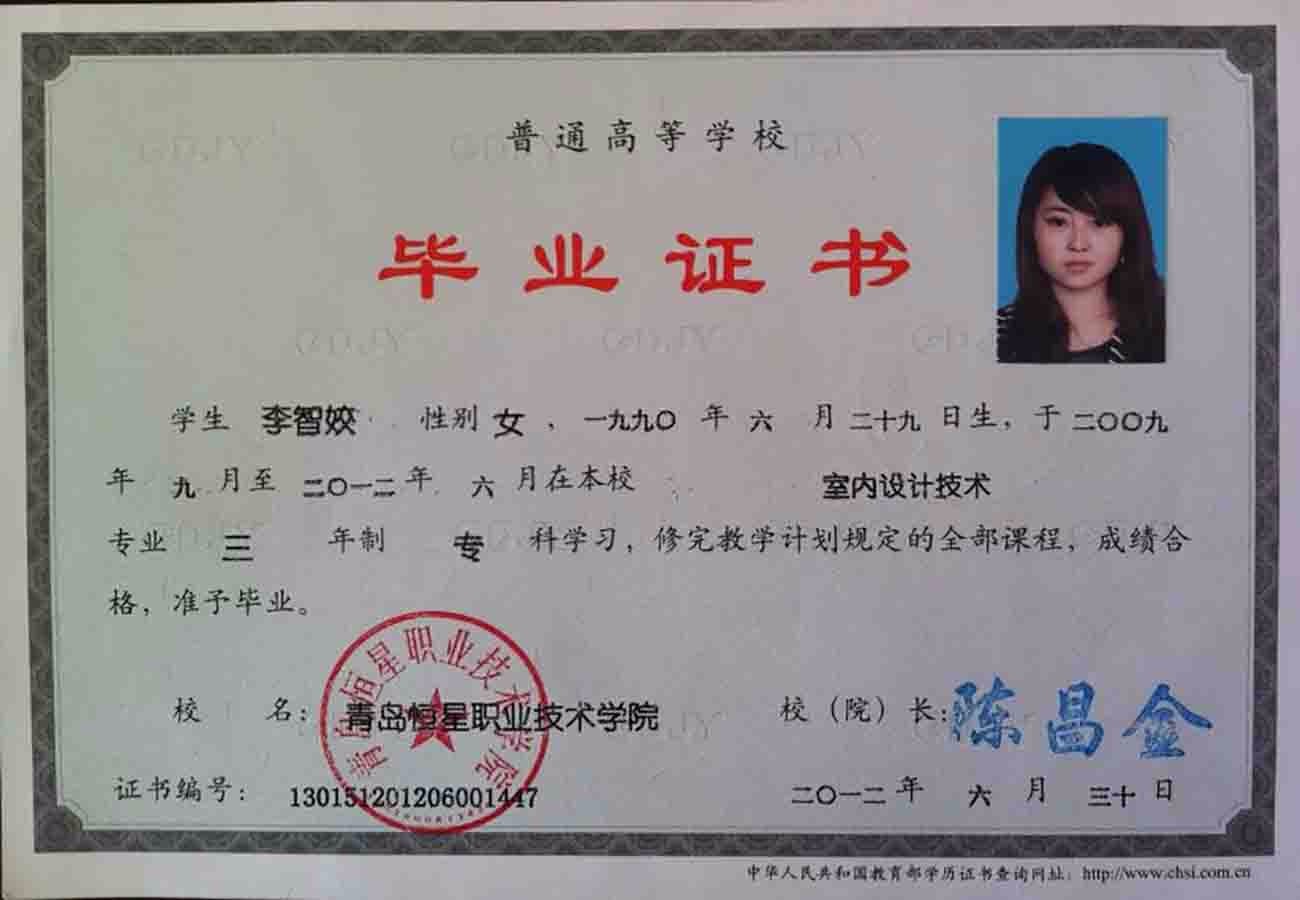 普通高等学校
毕业证书
学生 李智姣 性别 女、一九九〇年 六 月 二十九 日生，于 二〇〇九
年 九 月至 二〇一二 年 六 月在本校 室内设计技术
专业 三 年制 专 科学习，修完教学计划规定的全部课程，成绩合
格，准予毕业。
校 名：青岛恒星职业技术学院 校（院）长：陈昌金
青岛恒星职业技术学院
证书编号：130151201206001447 二〇一二 年 六 月 三十 日
中华人民共和国教育部学历证书查询网址：http://www.chsi.com.cn